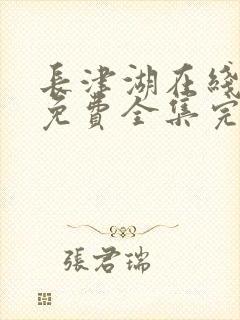 長津湖在綫
免費全集完
張君瑞